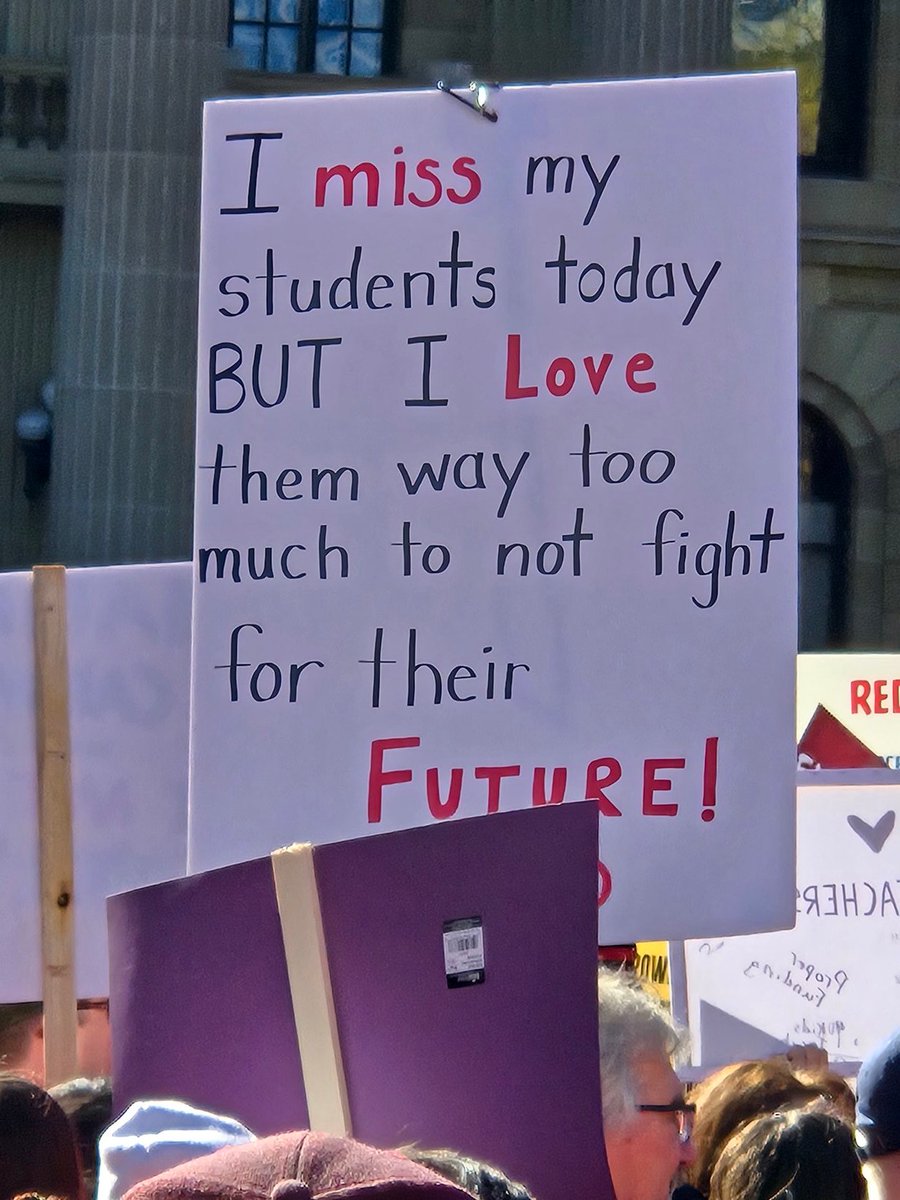 I miss my
students today
BUT I Love
them way too
much to not fight
for their
FUTURE!
RED
TEACHERS
Proper
Funding